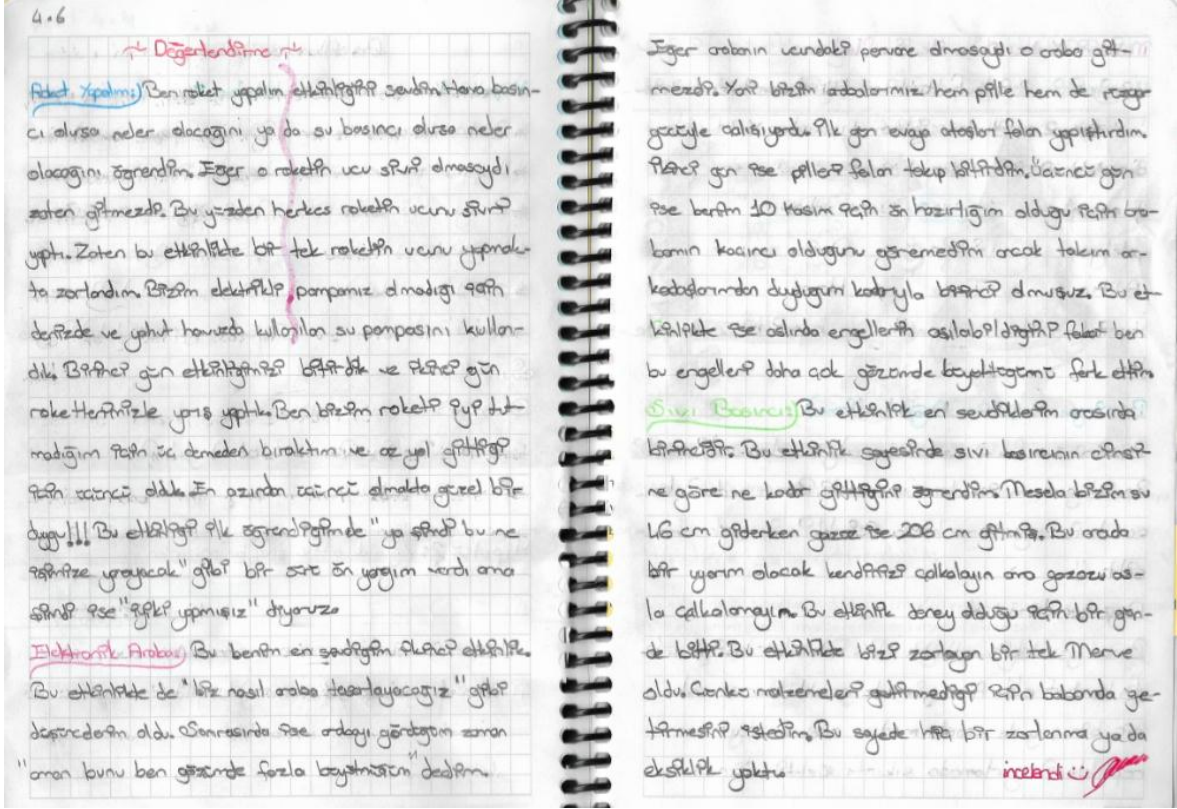 4.6
~ Değerlendirme ~
Roket Yapalım: Ben roket yapalım etkinliğini sevdim. Hava basın-
cı olursa neler olacağını ya da su basıncı olursa neler
olacağını öğrendim. Eğer o roketin ucu sivri olmasaydı
zaten gitmezdi. Bu yüzden herkes roketin ucunu sivri
yaptı. Zaten bu etkinlikte bir tek roketin ucunu yapmak-
ta zorlandım. Bizim elektrikli pompamız olmadığı için
denizde ve yahut havuzda kullanılan su pompasını kullan-
dık. Birinci gün etkinliğimizi bitirdik ve ikinci gün
roketlerimizle yarış yaptık. Ben bizim roketi iyi tut-
madığım için üç demeden bıraktım ve az yol gittiği
için üçüncü olduk. En azından üçüncü olmakta güzel bir
duygu!!! Bu etkinliği ilk öğrendiğimde "ya şimdi bu ne
işimize yarayacak" gibi bir sürü ön yargım vardı ama
şimdi ise "iyiki yapmışız" diyoruz.
Elektronik Araba: Bu benim en sevdiğim ikinci etkinlik.
Bu etkinlikte de "biz nasıl araba tasarlayacağız" gibi
düşüncelerim oldu. Sonrasında ise gördüğüm zaman
"aman bunu ben gözümde fazla büyütmüşüm" dedim.
Eğer arabanın ucundaki pervane olmasaydı o araba git-
mezdi. Yani bizim arabalarımız hem pille hem de rüzgar
gücüyle çalışıyordu. İlk gün evaya ataşları falan yapıştırdım.
İkinci gün ise pilleri falan takıp bitirdim. Üçüncü gün
ise benim 10 Kasım için ön hazırlığım olduğu için ara-
bamın kaçıncı olduğunu göremedim ancak takım ar-
kadaşlarımdan duyduğum kadarıyla birinci olmuşuz. Bu et-
kinlikte ise aslında engellerin aşılabildiğini fakat ben
bu engelleri daha çok gözümde büyüttüğümü fark ettim.
Sıvı Basıncı: Bu etkinlik en sevdiklerim arasında
birincisi. Bu etkinlik sayesinde sıvı basıncının cinsi-
ne göre ne kadar gittiğini öğrendim. Mesela bizim su
46 cm giderken gazoz ise 206 cm gitmiş. Bu arada
bir uyarım olacak kendinizi çalkalayın ama gazozu as-
la çalkalamayın. Bu etkinlik deney olduğu için bir gün-
de bitti. Bu etkinlikte bizi zorlayan bir tek Merve
oldu. Çünkü malzemeleri getirmediği için babamda ge-
tirmesini istedim. Bu sayede hiç bir zorlanma ya da
eksiklik yoktu.
incelendi